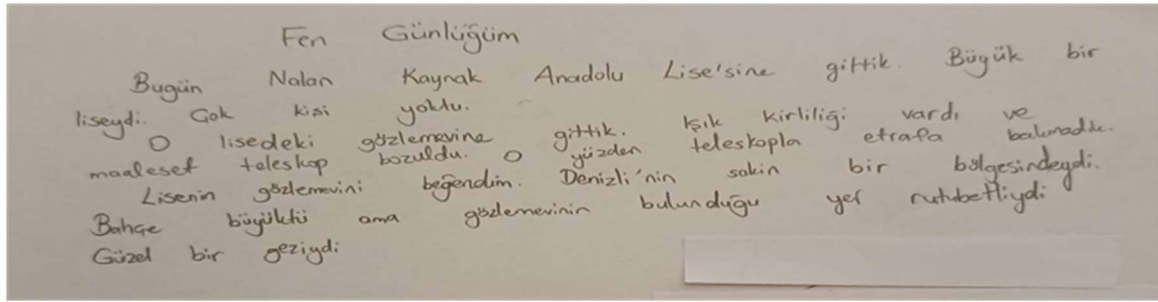 Fen Günlüğüm
Bugün Nalan Kaynak Anadolu Lise'sine gittik. Büyük bir
liseydi. Çok kisi yoktu.
O lisedeki gözlemevine gittik. Işık kirliliği vardı ve
maalesef teleskop bozuldu. O yüzden teleskopla etrafa bakmadık.
Lisenin gözlemevini beğendim. Denizli'nin sakin bir bölgesindeydi.
Bahçe büyüktü ama gözlemevinin bulunduğu yer rutubetliydi
Güzel bir geziydi